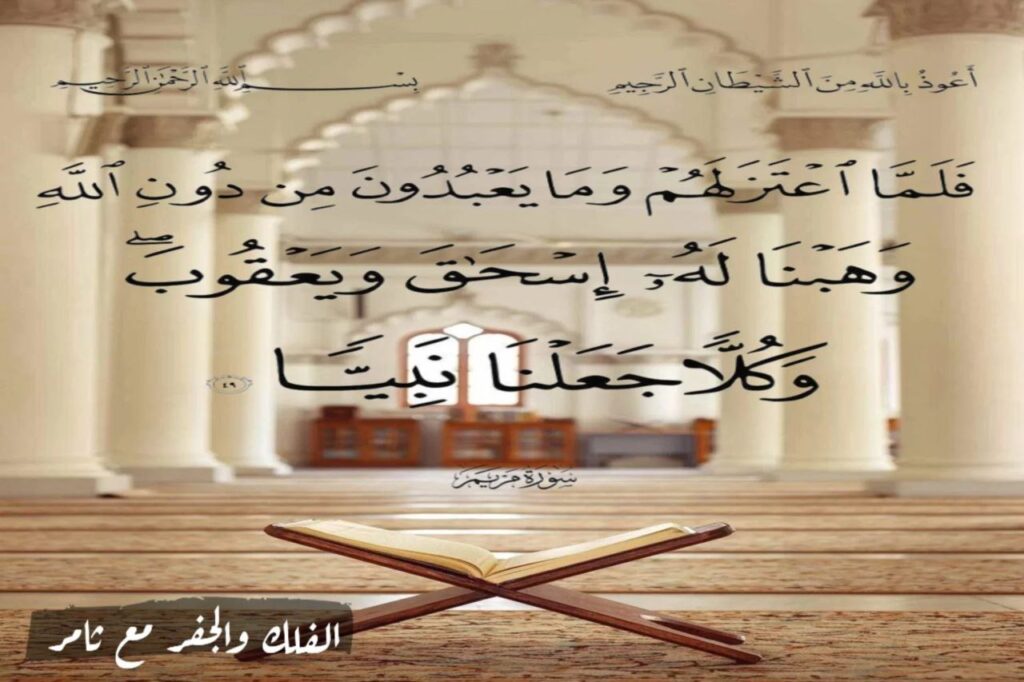 أَعُوذُ بِاللَّهِ مِنَ الشَّيْطَانِ الرَّجِيمِ بِسْمِ اللَّهِ الرَّحْمَٰنِ الرَّحِيمِ
فَلَمَّا ٱعْتَزَلَهُمْ وَمَا يَعْبُدُونَ مِن دُونِ ٱللَّهِ
وَهَبْنَا لَهُۥٓ إِسْحَٰقَ وَيَعْقُوبَۖ
وَكُلًّا جَعَلْنَا نَبِيًّا ٤٩
سُورَةُ مَرْيَم
الفلك والجفر مع ثامر